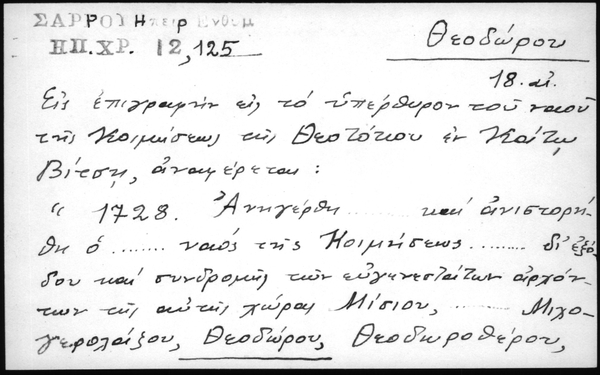 ΣΑΡΡΟΥ Ηπειρ Ενθυμ
ΗΠ.ΧΡ. 12,125
Θεοδώρου
18. αἰ.
Εἰς ἐπιγραφὴν εἰς τὸ ὑπέρθυρον τοῦ ναοῦ
τῆς Κοιμήσεως τῆς Θεοτόκου ἐν Κάτω
Βίτσῃ, ἀναφέρεται :
" 1728. Ἀνηγέρθη ......... καὶ ἀνιστορή-
θη ὁ ......... ναός τῆς Κοιμήσεως ......... δι' ἐξό-
δου καὶ συνδρομῆς τῶν εὐγενεστάτων ἀρχόν-
των τῆς αὐτῆς χώρας Μίσιου, ......... Μιχο-
γερολαίξου, Θεοδώρου, Θεοδωροθέρου,